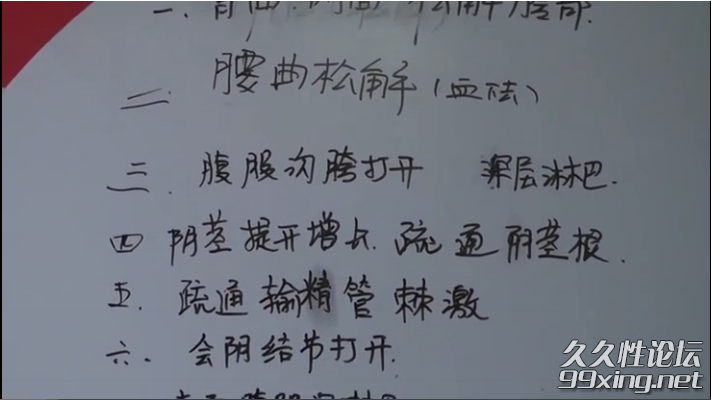 一、背面
二、腰曲松解(血法)
三、腹股沟胯打开 深层淋巴.
四 阴茎提开增长.疏通阴茎根.
五.疏通输精管棘激
六.会阴结节打开.
久久性论坛
99xing.net